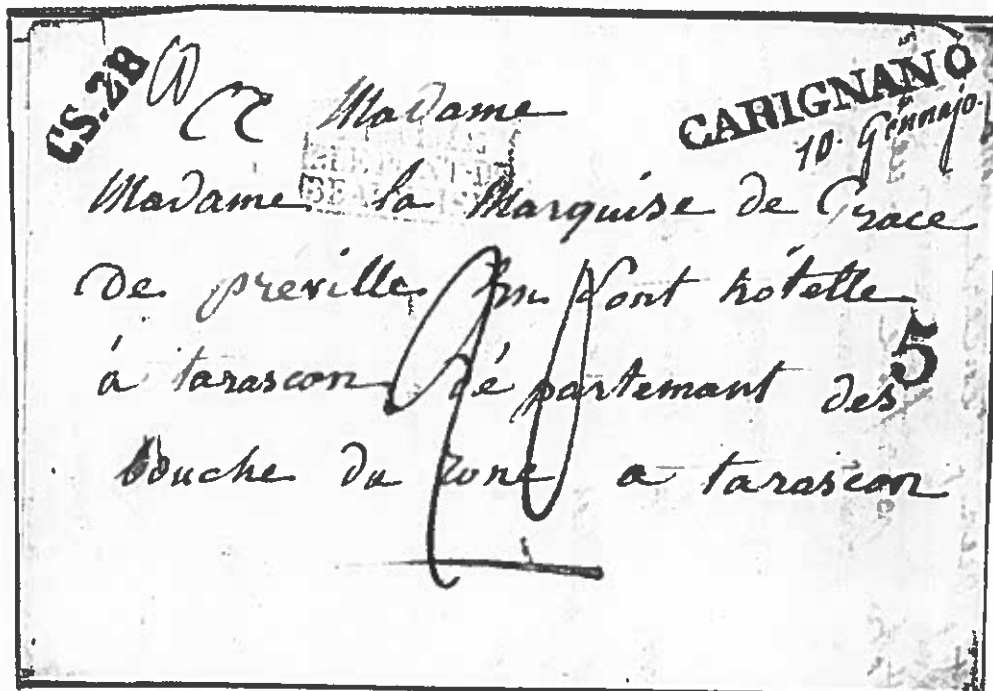 CS.2R
CARIGNANO
10. Gennajo.
Madame
Madame la Marquise de Grace
de preville en sont hôtelle
5
à tarascon dé partemant des
bouche du rone a tarascon